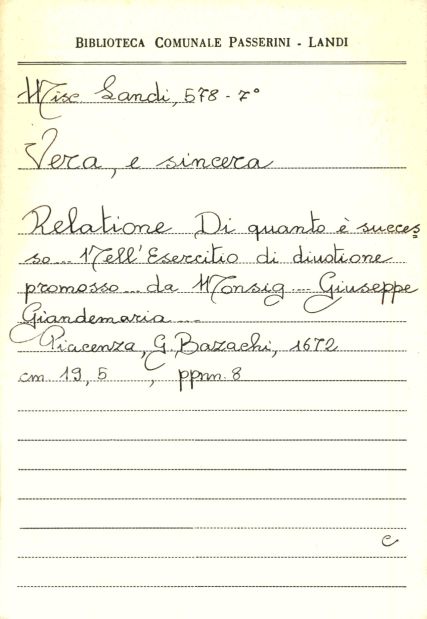 BIBLIOTECA COMUNALE PASSERINI - LANDI
Misc Landi, 578 - 7°
Vera, e sincera
Relatione Di quanto è succes
so ... Nell'Esercitio di diuotione
promosso ... da Monsig ... Giuseppe
Giandemaria ...
Piacenza, G. Bazachi, 1672
cm 19, 5 , ppnn. 8
c